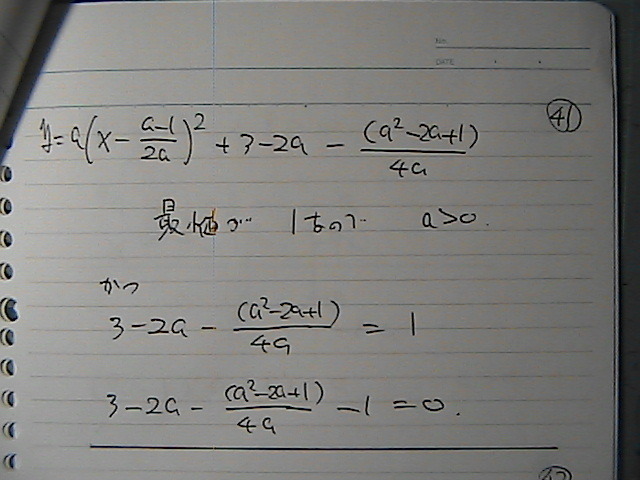 No.
DATE
㊶
y=a(x-\frac{a-1}{2a})^2+3-2a-\frac{(a^2-2a+1)}{4a}
最小値が 1なので a>0.
かつ
3-2a-\frac{(a^2-2a+1)}{4a}=1
3-2a-\frac{(a^2-2a+1)}{4a}-1=0.